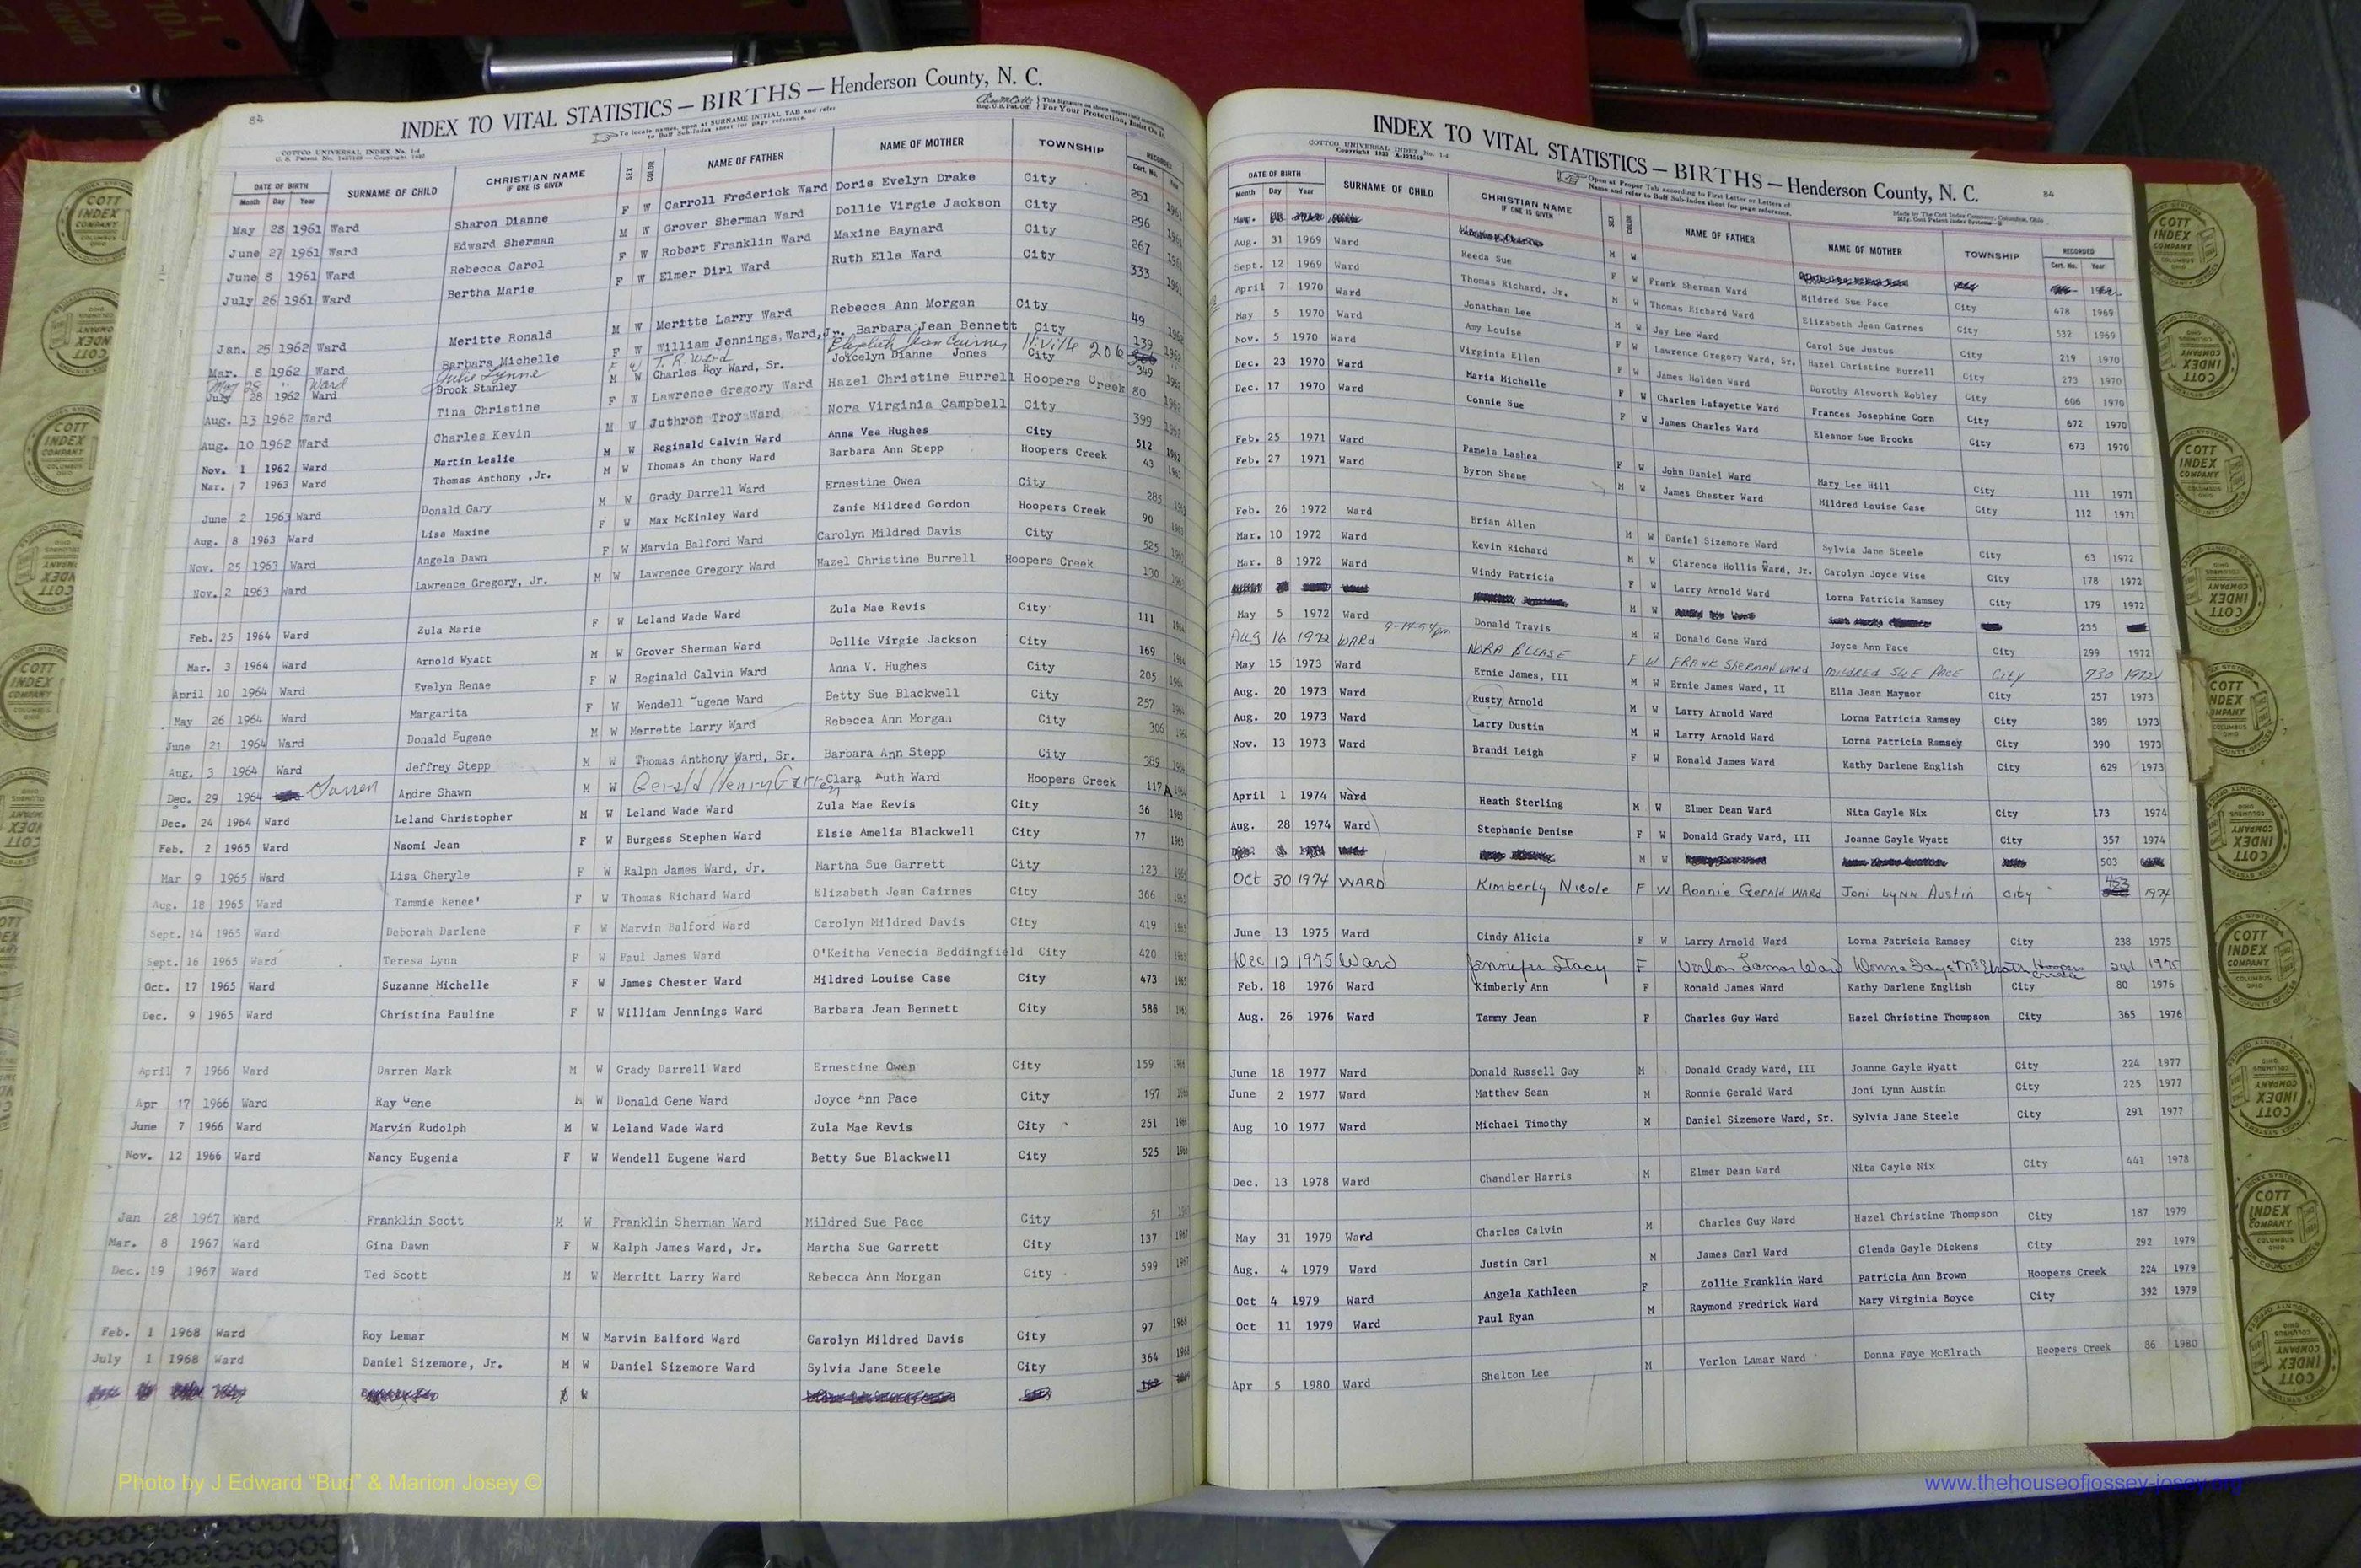 84
INDEX TO VITAL STATISTICS — BIRTHS — Henderson County, N. C.
To locate names, open at SURNAME INITIAL TAB and refer
to Buff Sub-Index sheet for page reference.
This Signature on sheets
For Your Protection, Insist On It.
COTTCO UNIVERSAL INDEX No. 1-4
DATE OF BIRTH SURNAME OF CHILD CHRISTIAN NAME IF ONE IS GIVEN SEX COLOR NAME OF FATHER NAME OF MOTHER TOWNSHIP RECORDED
Month Day Year Cert. No.
May 28 1961 Ward Sharon Dianne F W Carroll Frederick Ward Doris Evelyn Drake City 251 1961
June 27 1961 Ward Edward Sherman M W Grover Sherman Ward Dollie Virgie Jackson City 296 1961
June 8 1961 Ward Rebecca Carol F W Robert Franklin Ward Maxine Baynard City 267 1961
July 26 1961 Ward Bertha Marie F W Elmer Dirl Ward Ruth Ella Ward City 333 1961
Jan. 25 1962 Ward Meritte Ronald M W Meritte Larry Ward Rebecca Ann Morgan City 49 1962
Mar. 8 1962 Ward Barbara Michelle F W William Jennings Ward, Jr. Barbara Jean Bennett City 139 1962
May 28 " Ward Julie Lynne F W T. R. Ward Elizabeth Jean Cairnes H'ville 206
July 28 1962 Ward Brook Stanley M W Charles Roy Ward, Sr. Joicelyn Dianne Jones City 349 1962
Aug. 13 1962 Ward Tina Christine F W Lawrence Gregory Ward Hazel Christine Burrell Hoopers Creek 80 1962
Aug. 10 1962 Ward Charles Kevin M W Juthron Troy Ward Nora Virginia Campbell City 399 1962
Nov. 1 1962 Ward Martin Leslie M W Reginald Calvin Ward Anna Vea Hughes City 512 1962
Mar. 7 1963 Ward Thomas Anthony ,Jr. M W Thomas An thony Ward Barbara Ann Stepp Hoopers Creek 43 1963
June 2 1963 Ward Donald Gary M W Grady Darrell Ward Ernestine Owen City 285
Aug. 8 1963 Ward Lisa Maxine F W Max McKinley Ward Zanie Mildred Gordon Hoopers Creek 90
Nov. 25 1963 Ward Angela Dawn F W Marvin Balford Ward Carolyn Mildred Davis City 525
Nov. 2 1963 Ward Lawrence Gregory, Jr. M W Lawrence Gregory Ward Hazel Christine Burrell Hoopers Creek 130
Feb. 25 1964 Ward Zula Marie F W Leland Wade Ward Zula Mae Revis City 111
Mar. 3 1964 Ward Arnold Wyatt M W Grover Sherman Ward Dollie Virgie Jackson City 169
April 10 1964 Ward Evelyn Renae F W Reginald Calvin Ward Anna V. Hughes City 205
May 26 1964 Ward Margarita F W Wendell Eugene Ward Betty Sue Blackwell City 257
June 21 1964 Ward Donald Eugene M W Merrette Larry Ward Rebecca Ann Morgan City 306
Aug. 3 1964 Ward Jeffrey Stepp M W Thomas Anthony Ward, Sr. Barbara Ann Stepp City 389
Dec. 29 1964 Garren Andre Shawn M W Gerald Henry Garren Clara Ruth Ward Hoopers Creek 117 A
Dec. 24 1964 Ward Leland Christopher M W Leland Wade Ward Zula Mae Revis City 36 1965
Feb. 2 1965 Ward Naomi Jean F W Burgess Stephen Ward Elsie Amelia Blackwell City 77 1965
Mar 9 1965 Ward Lisa Cheryle F W Ralph James Ward, Jr. Martha Sue Garrett City 123
Aug. 18 1965 Ward Tammie Renee' F W Thomas Richard Ward Elizabeth Jean Cairnes City 366 1965
Sept. 14 1965 Ward Deborah Darlene F W Marvin Balford Ward Carolyn Mildred Davis City 419 1965
Sept. 16 1965 Ward Teresa Lynn F W Paul James Ward O'Keitha Venecia Beddingfield City 420 1965
Oct. 17 1965 Ward Suzanne Michelle F W James Chester Ward Mildred Louise Case City 473 1965
Dec. 9 1965 Ward Christina Pauline F W William Jennings Ward Barbara Jean Bennett City 586 1965
April 7 1966 Ward Darren Mark M W Grady Darrell Ward Ernestine Owen City 159 1966
Apr 17 1966 Ward Ray Gene M W Donald Gene Ward Joyce Ann Pace City 197 1966
June 7 1966 Ward Marvin Rudolph M W Leland Wade Ward Zula Mae Revis City 251 1966
Nov. 12 1966 Ward Nancy Eugenia F W Wendell Eugene Ward Betty Sue Blackwell City 525 1966
Jan 28 1967 Ward Franklin Scott M W Franklin Sherman Ward Mildred Sue Pace City 51
Mar. 8 1967 Ward Gina Dawn F W Ralph James Ward, Jr. Martha Sue Garrett City 137 1967
Dec. 19 1967 Ward Ted Scott M W Merritt Larry Ward Rebecca Ann Morgan City 599 1967
Feb. 1 1968 Ward Roy Lemar M W Marvin Balford Ward Carolyn Mildred Davis City 97 1968
July 1 1968 Ward Daniel Sizemore, Jr. M W Daniel Sizemore Ward Sylvia Jane Steele City 364 1968
W
Photo by J Edward "Bud" & Marion Josey ©
INDEX TO VITAL STATISTICS — BIRTHS — Henderson County, N. C.
84
COTTCO UNIVERSAL INDEX No. 1-4
Open at Proper Tab according to First Letter or Letters of
Name and refer to Buff Sub-Index sheet for page reference.
Made by The Cott Index Company, Columbus, Ohio
DATE OF BIRTH SURNAME OF CHILD CHRISTIAN NAME IF ONE IS GIVEN SEX COLOR NAME OF FATHER NAME OF MOTHER TOWNSHIP RECORDED
Month Day Year Cert. No. Year
M W
Aug. 31 1969 Ward Reeda Sue F W Frank Sherman Ward Mildred Sue Pace City 478 1969
Sept. 12 1969 Ward Thomas Richard, Jr. M W Thomas Richard Ward Elizabeth Jean Cairnes City 532 1969
April 7 1970 Ward Jonathan Lee M W Jay Lee Ward Carol Sue Justus City 219 1970
May 5 1970 Ward Amy Louise F W Lawrence Gregory Ward, Sr. Hazel Christine Burrell City 273 1970
Nov. 5 1970 Ward Virginia Ellen F W James Holden Ward Dorothy Alsworth Robley City 606 1970
Dec. 23 1970 Ward Maria Michelle F W Charles Lafayette Ward Frances Josephine Corn City 672 1970
Dec. 17 1970 Ward Connie Sue F W James Charles Ward Eleanor Sue Brooks City 673 1970
Feb. 25 1971 Ward Pamela Lashea F W John Daniel Ward Mary Lee Hill City 111 1971
Feb. 27 1971 Ward Byron Shane M W James Chester Ward Mildred Louise Case City 112 1971
Feb. 26 1972 Ward Brian Allen M W Daniel Sizemore Ward Sylvia Jane Steele City 63 1972
Mar. 10 1972 Ward Kevin Richard M W Clarence Hollis Ward, Jr. Carolyn Joyce Wise City 178 1972
Mar. 8 1972 Ward Windy Patricia F W Larry Arnold Ward Lorna Patricia Ramsey City 179 1972
M W 235
May 5 1972 Ward Donald Travis M W Donald Gene Ward Joyce Ann Pace City 299 1972
Aug 16 1972 WARD NORA BLEASE F W FRANK SHERMAN WARD MILDRED SUE PACE City 730 1972
May 15 1973 Ward Ernie James, III M W Ernie James Ward, II Ella Jean Maynor City 257 1973
Aug. 20 1973 Ward Rusty Arnold M W Larry Arnold Ward Lorna Patricia Ramsey City 389 1973
Aug. 20 1973 Ward Larry Dustin M W Larry Arnold Ward Lorna Patricia Ramsey City 390 1973
Nov. 13 1973 Ward Brandi Leigh F W Ronald James Ward Kathy Darlene English City 629 1973
April 1 1974 Ward Heath Sterling M W Elmer Dean Ward Nita Gayle Nix City 173 1974
Aug. 28 1974 Ward Stephanie Denise F W Donald Grady Ward, III Joanne Gayle Wyatt City 357 1974
M W 503
Oct 30 1974 WARD Kimberly Nicole F W Ronnie Gerald WARD Joni Lynn Austin City 453 1974
June 13 1975 Ward Cindy Alicia F W Larry Arnold Ward Lorna Patricia Ramsey City 238 1975
Dec 12 1975 Ward Jennifer Stacy F Verlon Lamar Ward Donna Faye McElrath Hoopers Creek 241 1975
Feb. 18 1976 Ward Kimberly Ann F Ronald James Ward Kathy Darlene English City 80 1976
Aug. 26 1976 Ward Tammy Jean F Charles Guy Ward Hazel Christine Thompson City 365 1976
June 18 1977 Ward Donald Russell Guy M Donald Grady Ward, III Joanne Gayle Wyatt City 224 1977
June 2 1977 Ward Matthew Sean M Ronnie Gerald Ward Joni Lynn Austin City 225 1977
Aug 10 1977 Ward Michael Timothy M Daniel Sizemore Ward, Sr. Sylvia Jane Steele City 291 1977
Dec. 13 1978 Ward Chandler Harris M Elmer Dean Ward Nita Gayle Nix City 441 1978
May 31 1979 Ward Charles Calvin M Charles Guy Ward Hazel Christine Thompson City 187 1979
Aug. 4 1979 Ward Justin Carl M James Carl Ward Glenda Gayle Dickens City 292 1979
Oct 4 1979 Ward Angela Kathleen F Zollie Franklin Ward Patricia Ann Brown Hoopers Creek 224 1979
Oct 11 1979 Ward Paul Ryan M Raymond Fredrick Ward Mary Virginia Boyce City 392 1979
Apr 5 1980 Ward Shelton Lee M Verlon Lamar Ward Donna Faye McElrath Hoopers Creek 86 1980
www.thehouseofjossey-josey.org
COTT INDEX COMPANY COLUMBUS OHIO